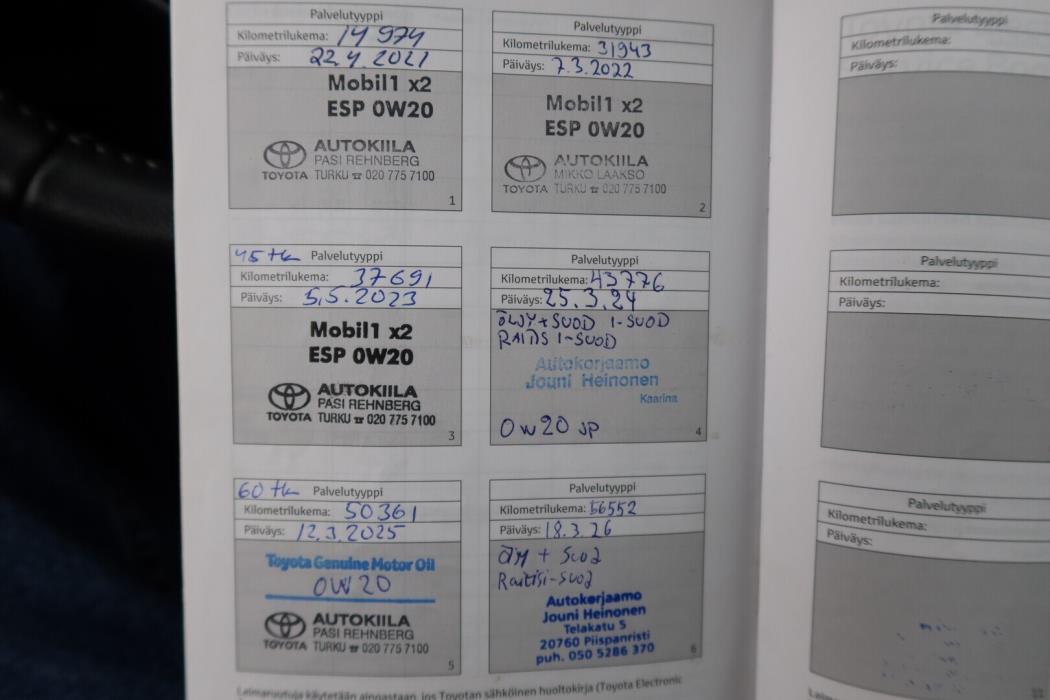 Palvelutyyppi
Kilometrilukema: 14 974
Päiväys: 22.4.2021
Mobil1 x2
ESP 0W20
AUTOKIILA
PASI REHNBERG
TOYOTA TURKU ☎ 020 775 7100
1
Palvelutyyppi
Kilometrilukema: 31943
Päiväys: 7.3.2022
Mobil1 x2
ESP 0W20
AUTOKIILA
MIKKO LAAKSO
TOYOTA TURKU ☎ 020 775 7100
2
45 tk Palvelutyyppi
Kilometrilukema: 37691
Päiväys: 5.5.2023
Mobil1 x2
ESP 0W20
AUTOKIILA
PASI REHNBERG
TOYOTA TURKU ☎ 020 775 7100
3
Palvelutyyppi
Kilometrilukema: 43776
Päiväys: 25.3.24
ÖLJY + SUOD I-SUOD
RAITIS I-SUOD
Autokorjaamo
Jouni Heinonen
Kaarina
0W20 JP
4
60 tk Palvelutyyppi
Kilometrilukema: 50361
Päiväys: 12.3.2025
Toyota Genuine Motor Oil
0W20
AUTOKIILA
PASI REHNBERG
TOYOTA TURKU ☎ 020 775 7100
5
Palvelutyyppi
Kilometrilukema: 56552
Päiväys: 18.3.26
Öljy + Suod
Raitisi-suod
Autokorjaamo
Jouni Heinonen
Telakatu 5
20760 Piispanristi
puh. 050 5286 370
6
Leimaruutuja käytetään ainoastaan, jos Toyotan sähköinen huoltokirja (Toyota Electronic
Palvelutyyppi
Kilometrilukema:
Päiväys:
Palvelutyyppi
Kilometrilukema:
Päiväys:
Palvelutyyppi
Kilometrilukema:
Päiväys: